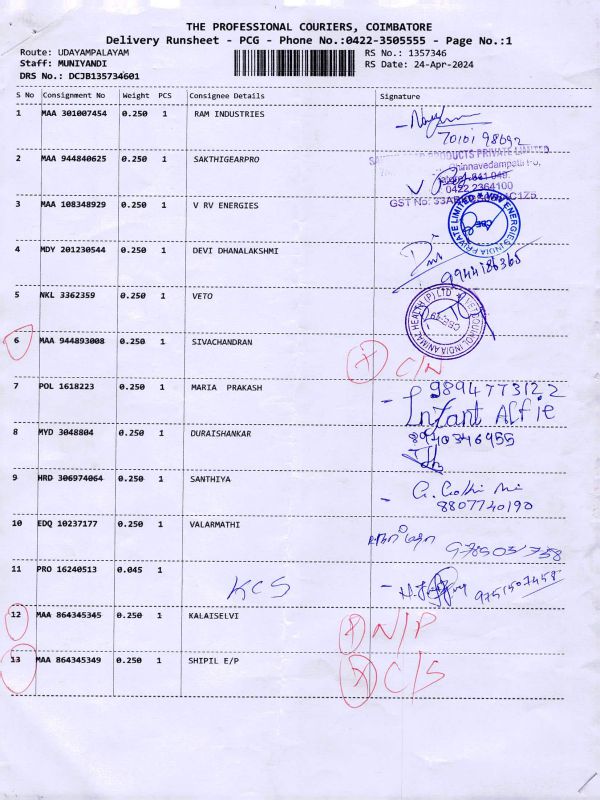 THE PROFESSIONAL COURIERS, COIMBATORE
Delivery Runsheet - PCG - Phone No.:0422-3505555 - Page No.:1
Route: UDAYAMPALAYAM RS No.: 1357346
Staff: MUNIYANDI RS Date: 24-Apr-2024
DRS No.: DCJB135734601
S No Consignment No Weight PCS Consignee Details Signature
1 MAA 301007454 0.250 1 RAM INDUSTRIES
70101 98692
2 MAA 944840625 0.250 1 SAKTHIGEARPRO
PRODUCTS PRIVATE LIMITED
Chinnavedampatti Po,
641 049.
0422 2364100
GST No: 33
3 MAA 108348929 0.250 1 V RV ENERGIES
V RV ENERGIES INDIA PRIVATE LIMITED
CBE
4 MDY 201230544 0.250 1 DEVI DHANALAKSHMI
9944186365
5 NKL 3362359 0.250 1 VETO
VETOQUINOL INDIA ANIMAL HEALTH (P) LTD
CBE-49
6 MAA 944893008 0.250 1 SIVACHANDRAN X C/N
7 POL 1618223 0.250 1 MARIA PRAKASH 9894773122
Infant Alfie
8 MYD 3048804 0.250 1 DURAISHANKAR 8940346955
9 HRD 306974064 0.250 1 SANTHIYA
8807740190
10 EDQ 10237177 0.250 1 VALARMATHI
11 PRO 16240513 0.045 1 KCS 9751507458
12 MAA 864345345 0.250 1 KALAISELVI X N/P
13 MAA 864345349 0.250 1 SHIPIL E/P X C/S